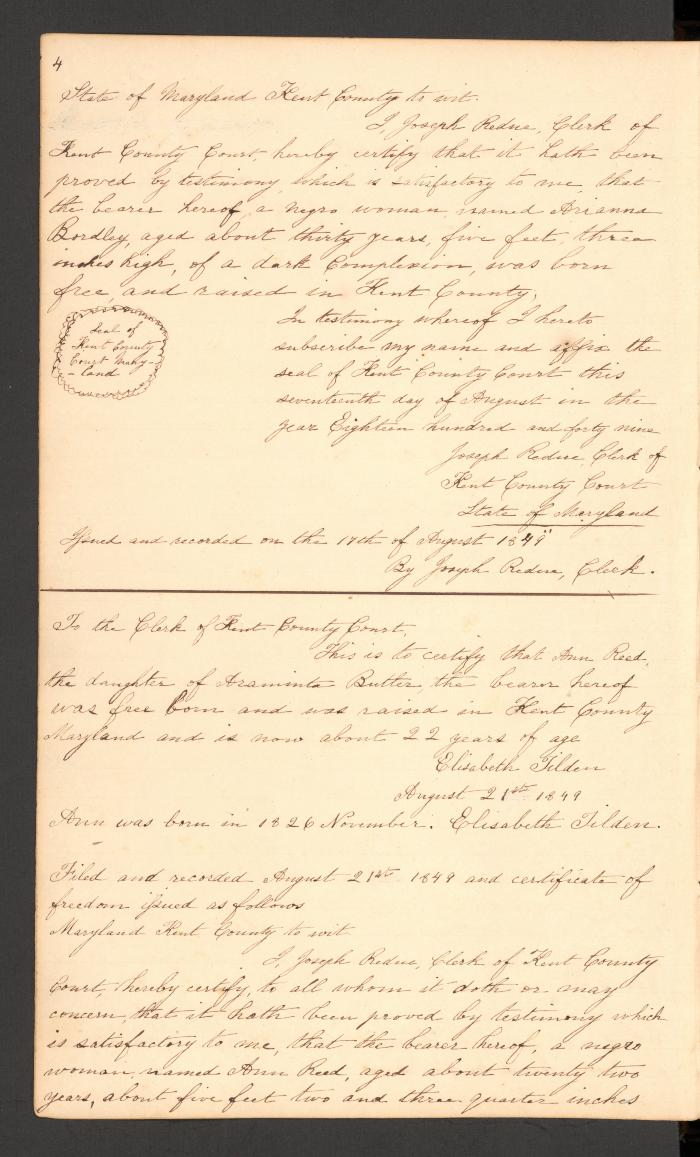 4
State of Maryland Kent County to wit.
I, Joseph Redue, Clerk of
Kent County Court, hereby certify that it hath been
proved by testimony, which is satisfactory to me, that
the bearer hereof, a negro woman, named Arianna
Bordley, aged about thirty years, five feet, three
inches high, of a dark Complexion, was born
free, and raised in Kent County,
Seal of
Kent County
Court Mary-
-land
In testimony whereof I hereto
subscribe my name and affix the
seal of Kent County Court this
seventeenth day of August in the
year Eighteen hundred and forty nine
Joseph Redue, Clerk of
Kent County Court
State of Maryland
Issued and recorded on the 17th of August 1849
By Joseph Redue, Clerk.
To the Clerk of Kent County Court,
This is to certify that Ann Reed,
the daughter of Araminta Butler, the bearer hereof
was free born and was raised in Kent County
Maryland and is now about 22 years of age
Elisabeth Tilden
August 21st 1849
Ann was born in 1826 November. Elisabeth Tilden.
Filed and recorded August 21st 1849 and certificate of
freedom issued as follows
Maryland Kent County to wit
I, Joseph Redue, Clerk of Kent County
Court, hereby certify, to all whom it doth or may
concern, that it hath been proved by testimony which
is satisfactory to me, that the bearer hereof, a negro
woman, named Ann Reed, aged about twenty two
years, about five feet two and three quarter inches